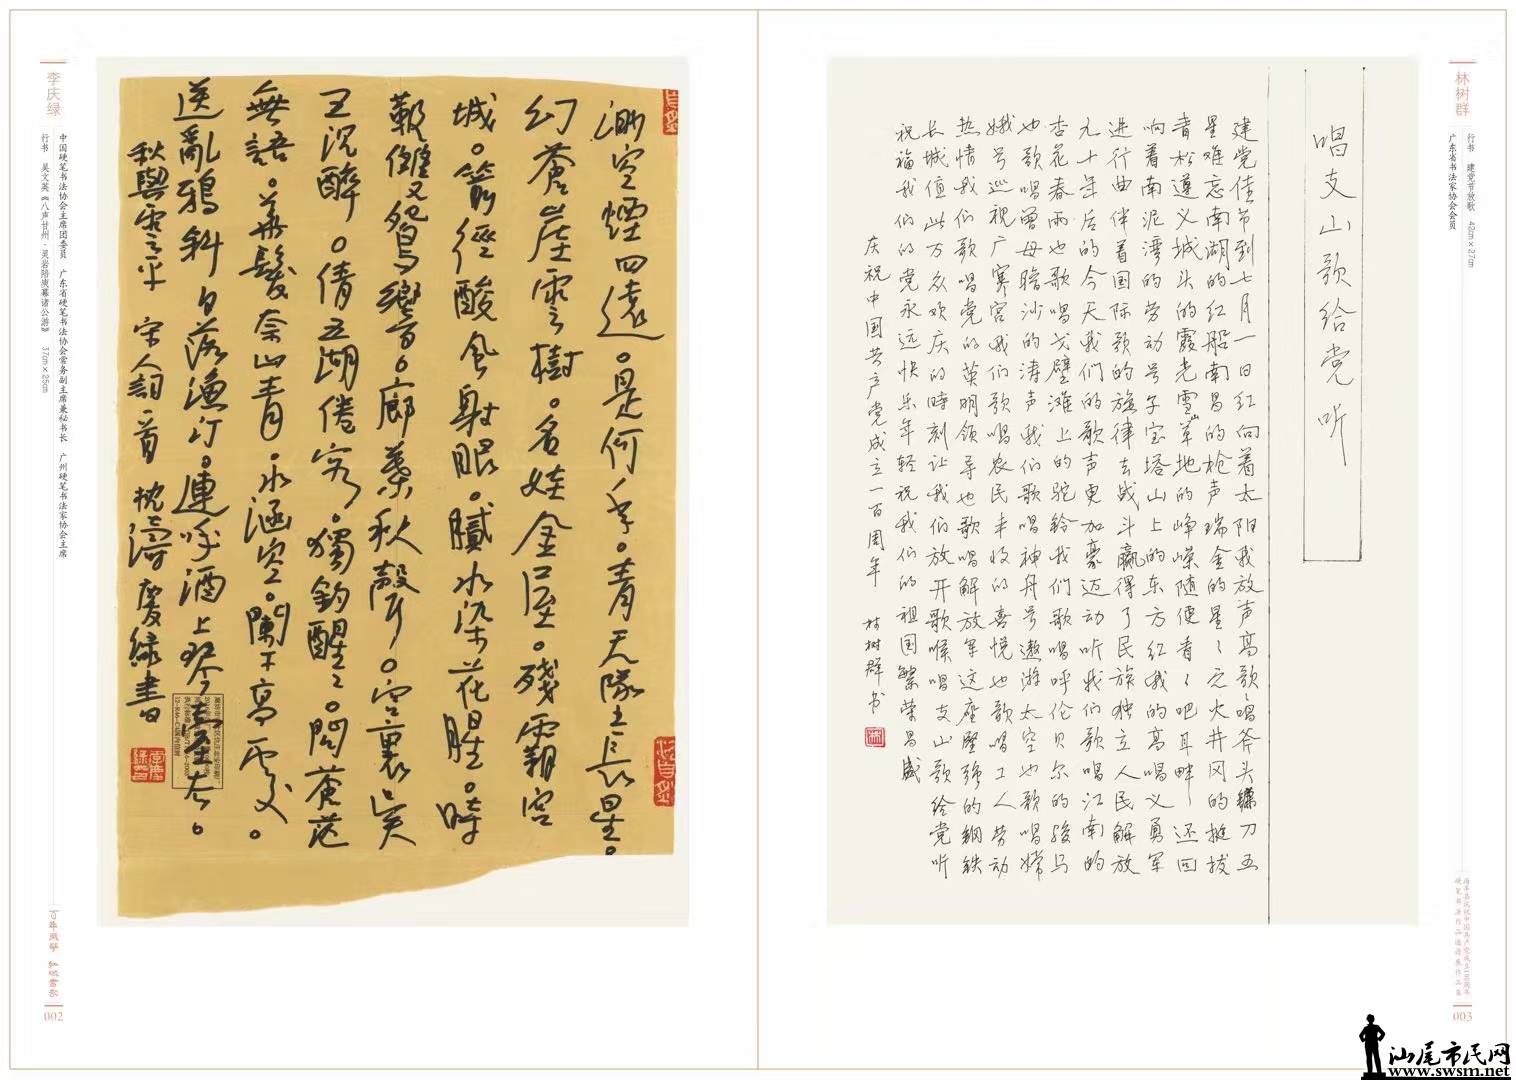 李庆绿
中国硬笔书法协会主席团委员 广东省硬笔书法协会常务副主席兼秘书长 广州硬笔书法家协会主席
行书 吴文英《八声甘州·灵岩陪庾幕诸公游》 37cm×25cm
渺空煙四遠。是何年。青天墜長星。
幻蒼崖雲樹。名娃金屋。殘霸宮
城。箭徑酸風射眼。膩水染花腥。時
靸雙鴛響。廊葉秋聲。宮裏吳
王沉醉。倩五湖倦客。獨釣醒〻。問蒼茫
無語。華髮奈山青。水涵空。闌干高處。
送亂鴉斜日落漁汀。連呼酒上琴臺去。
秋與雲平 宋人詞一首 枕濤慶綠書
002
林树群
行书 建党节放歌 42cm×27cm
广东省书法家协会会员
唱支山歌给党听
建党佳节到七月一日红向着太阳我放声高歌唱斧头镰刀五
星难忘南湖的红船南昌的枪声瑞金的星〻之火井冈的挺拔
青松遵义城头的霞光雪山草地的峥嵘随便看〻吧耳畔还回
响着南泥湾的劳动号子宝塔山上的东方红我的高唱义勇军
进行曲伴着国际歌的旋律去战斗赢得了民族独立人民解放
九十年后的今天我们的歌声更加豪迈动听我们歌唱江南的
杏花春雨也歌唱戈壁滩上的驼铃我们歌唱呼伦贝尔的骏马
也歌唱曾母暗沙的涛声我们歌唱神舟号遨游太空也歌唱嫦
娥号巡视广寒宫我们歌唱农民丰收的喜悦也歌唱工人劳动
热情我们歌唱党的英明领导也歌唱解放军这座坚强的钢铁
长城值此万众欢庆的時刻让我们放开歌喉唱支山歌给党听
祝福我们的党永远快乐年轻祝我们的祖国繁荣昌盛
庆祝中国共产党成立一百周年 林树群书
海丰县庆祝中国共产党成立100周年
硬笔书法作品邀请展作品集
003
汕尾市民网
www.swsm.net